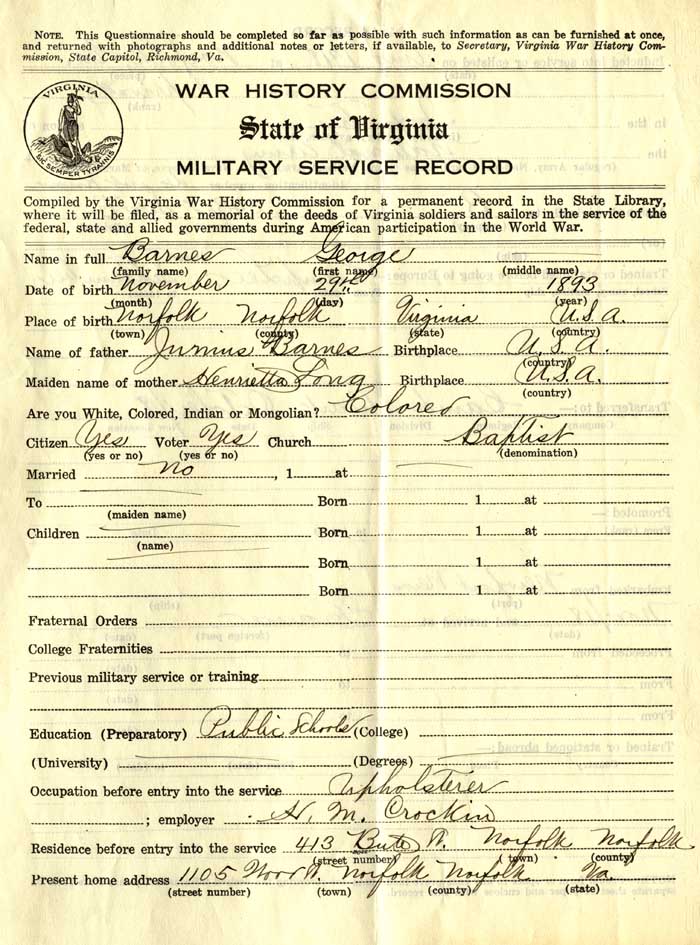 NOTE. This Questionnaire should be completed so far as possible with such information as can be furnished at once,
and returned with photographs and additional notes or letters, if available, to Secretary, Virginia War History Com-
mission, State Capitol, Richmond, Va.
VIRGINIA
SIC SEMPER TYRANNIS
WAR HISTORY COMMISSION
State of Virginia
MILITARY SERVICE RECORD
Compiled by the Virginia War History Commission for a permanent record in the State Library,
where it will be filed, as a memorial of the deeds of Virginia soldiers and sailors in the service of the
federal, state and allied governments during American participation in the World War.
Name in full Barnes George
(family name) (first name) (middle name)
Date of birth November 29th 1893
(month) (day) (year)
Place of birth Norfolk Norfolk Virginia U.S.A.
(town) (county) (state) (country)
Name of father Junius Barnes Birthplace U.S.A.
(country)
Maiden name of mother Henrietta Long Birthplace U.S.A.
(country)
Are you White, Colored, Indian or Mongolian? Colored
Citizen Yes Voter Yes Church Baptist
(yes or no) (yes or no) (denomination)
Married no , 1 at
To Born 1 at
(maiden name)
Children Born 1 at
(name)
Born 1 at
Born 1 at
Fraternal Orders
College Fraternities
Previous military service or training
Education (Preparatory) Public Schools (College)
(University) (Degrees)
Occupation before entry into the service Upholsterer
; employer H. M. Crockin
Residence before entry into the service 413 Bute St. Norfolk Norfolk
(street number) (town) (county)
Present home address 1105 Norfolk Norfolk Va.
(street number) (town) (county) (state)